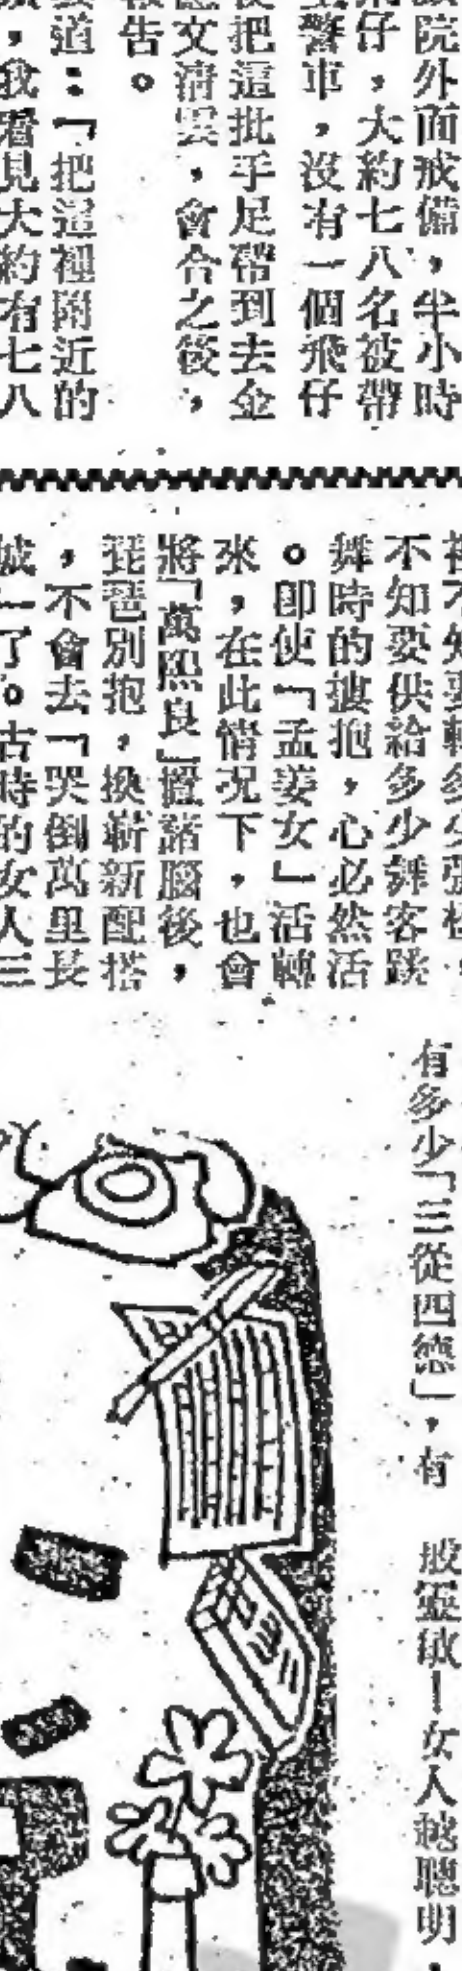 院外面戒備，半小時
仔，大約七八名被帶
警車，沒有一個飛仔
把這批手足帶到去金
文清罷，會合之後，
告。
道：「把這裡附近的
，我看見大約有七八
不知要供給多少舞客蹂
舞時的摟抱，心必然活
。卽使「孟姜女」活轉
來，在此情况下，也會
將「萬熙良」置諸腦後，
琵琶別抱，換嶄新配搭
，不會去「哭倒萬里長
城」了。古時的女人三
有多少「三從四德」，有
股靈敏！女人越聰明，